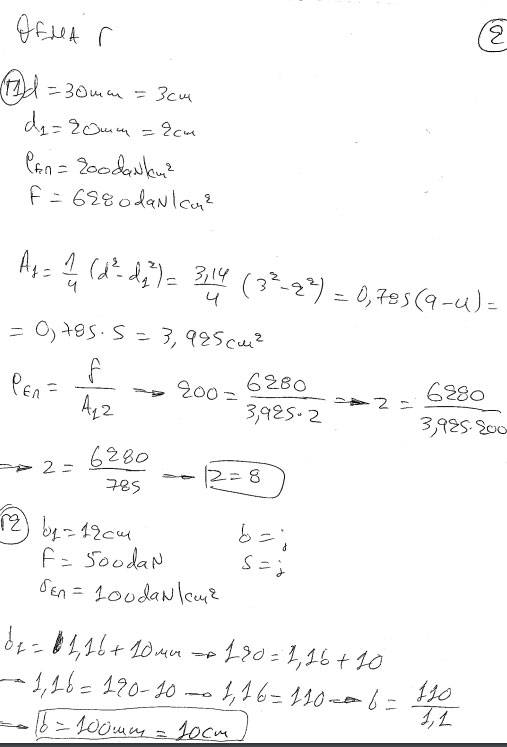 ΘΕΜΑ Γ
②
Γ1 d = 30mm = 3cm
d₁ = 20mm = 2cm
Pεπ = 200daN/cm²
F = 6280daN/cm²
A₁ = 1/4 (d² - d₁²) = 3,14/4 (3² - 2²) = 0,785(9-4) =
= 0,785·5 = 3,925cm²
Pεπ = F/A₁z → 200 = 6280/3,925·z → z = 6280/3,925·200
→ z = 6280/785 → z = 8
Γ2 b₁ = 12cm b = ;
F = 500daN s = ;
σεπ = 100daN/cm²
b₁ = 1,1b + 10mm → 120 = 1,1b + 10
→ 1,1b = 120-10 → 1,1b = 110 → b = 110/1,1
→ b = 100mm = 10cm